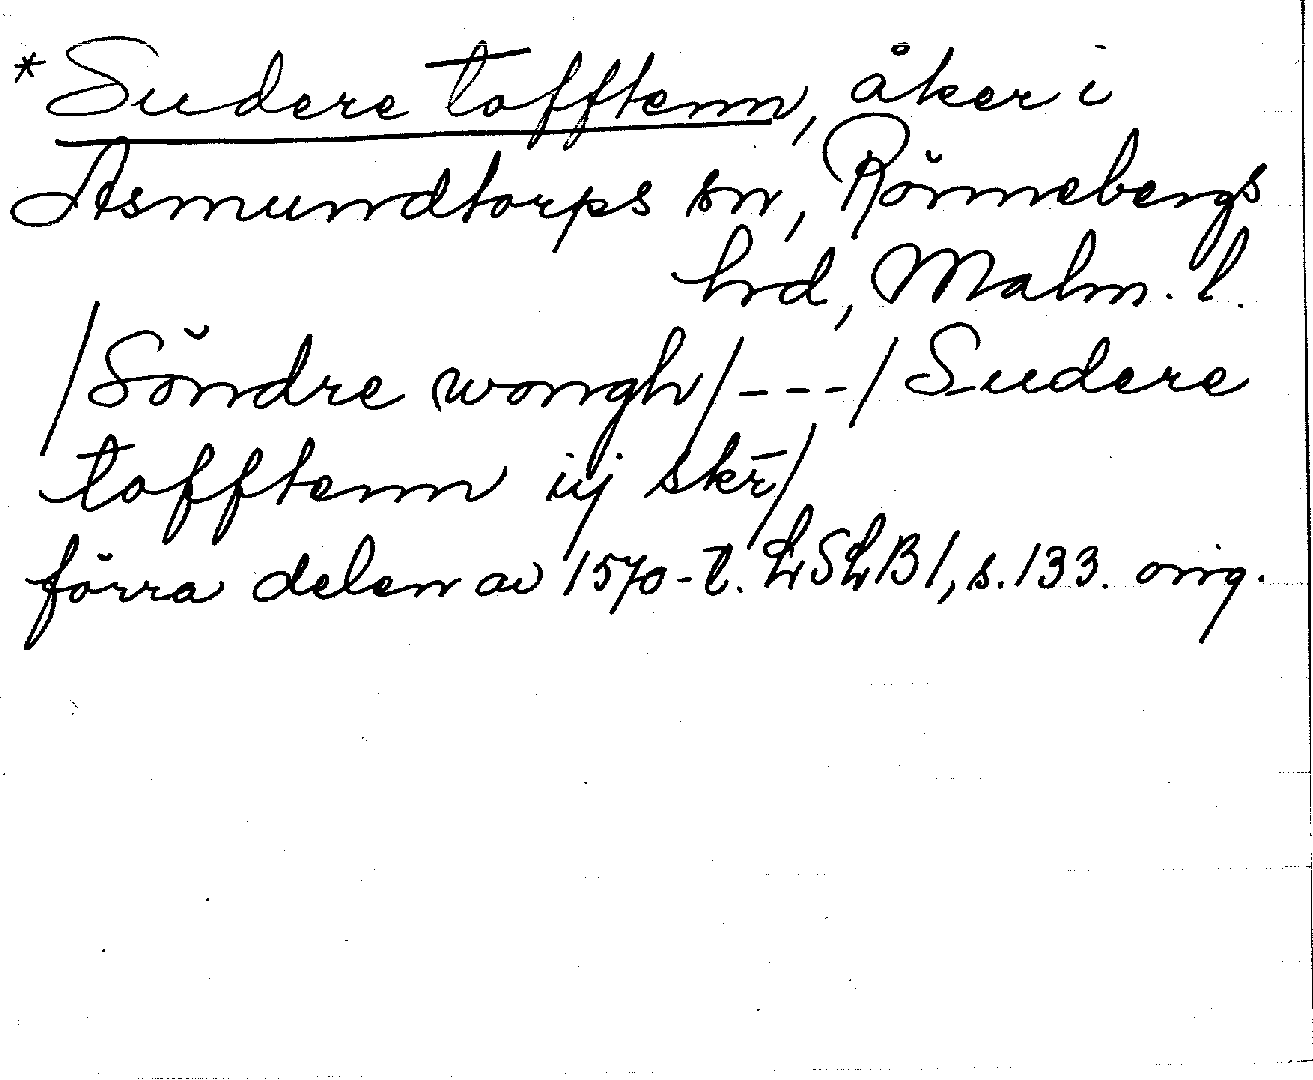 *Sudere tofftenn, åker i
Asmundtorps sn, Rönnebergs
hrd, Malm. l.
/Söndre wongh/---/Sudere
tofftenn iij skr̄/
förra delen av 1570-t. LSLB1, s.133. orig.